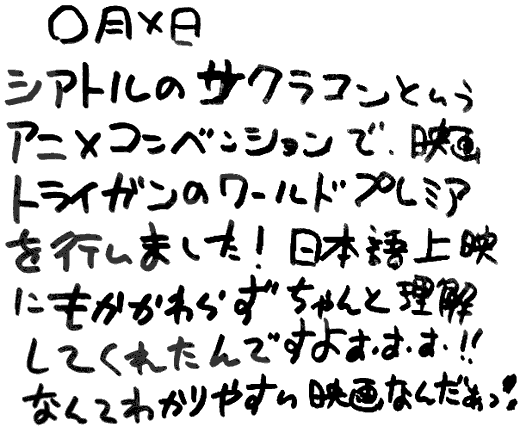 〇月×日
シアトルのサクラコンという
アニメコンベンションで、映画
トライガンのワールドプレミア
を行いました！日本語上映
にもかかわらずちゃんと理解
してくれたんですよォ.ォ.ォ.!!
なんてわかりやすい映画なんだぁっ!!